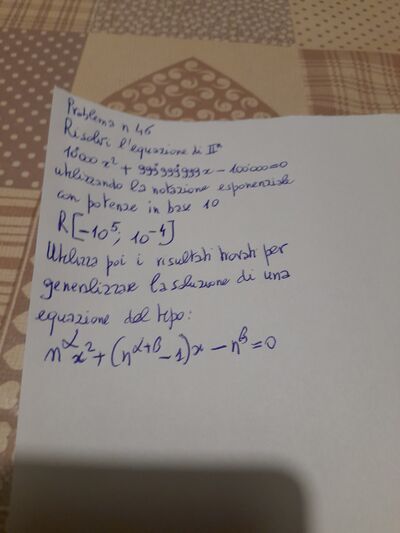 Problema n 46
Risolvi l'equazione di IIº
10'000 x² + 999'999'999 x - 100'000 = 0
utilizzando la notazione esponenziale
con potenze in base 10
R[-10⁵; 10⁻⁴]
Utilizza poi i risultati trovati per
generalizzare la soluzione di una
equazione del tipo:
n^α x² + (n^(α+β) - 1) x - n^β = 0